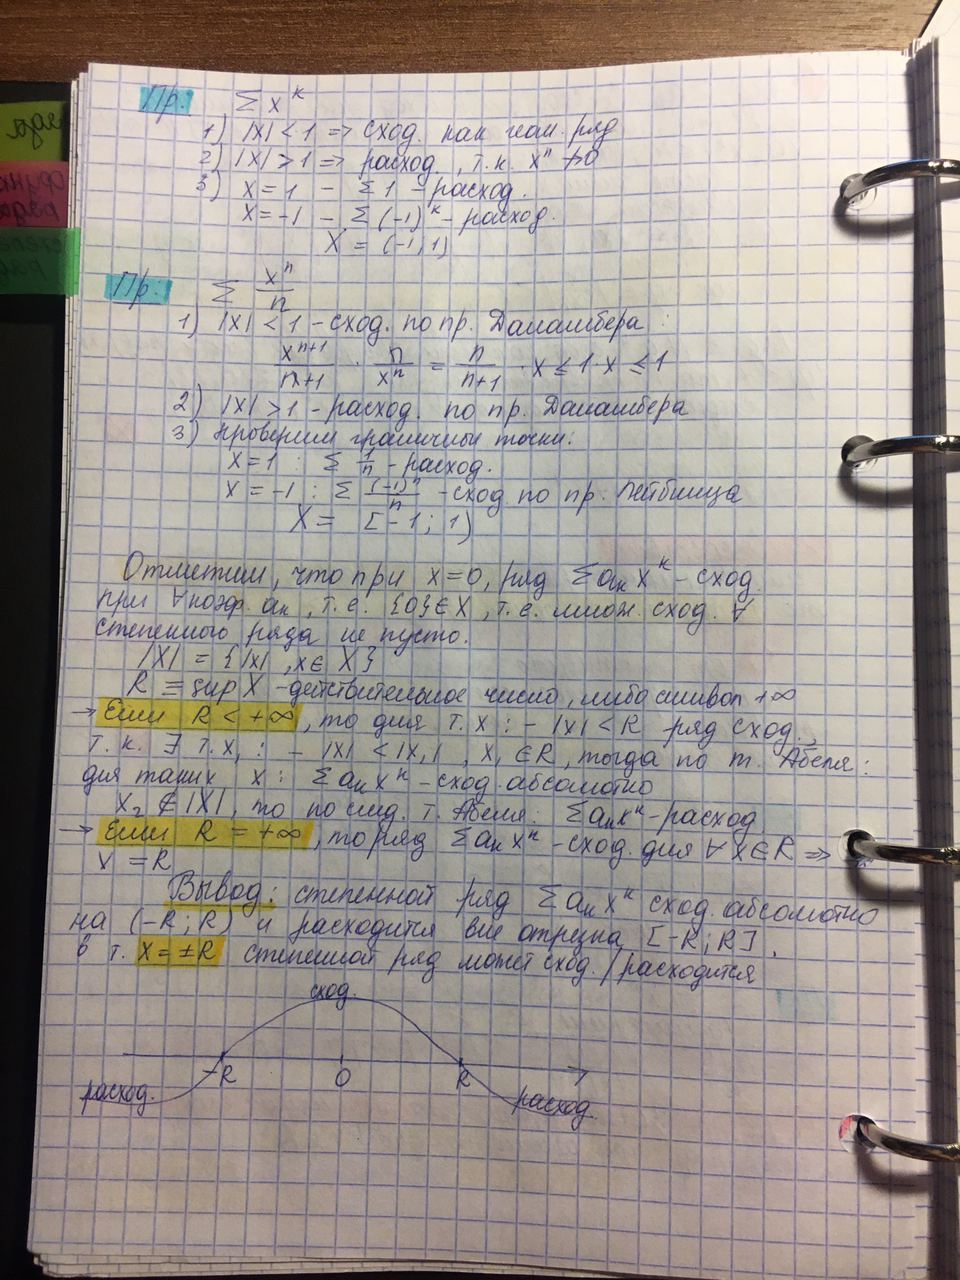 Пр. Σ x^k
1) |x| < 1 => сход. как геом. ряд
2) |x| > 1 => расход, т.к. x^n ↛ 0
3) x = 1 – Σ 1 – расход.
x = -1 – Σ (-1)^k – расход.
X = (-1, 1)
Пр. Σ x^n/n
1) |x| < 1 – сход. по пр. Даламбера :
x^(n+1)/(n+1) · n/x^n = n/(n+1) · x ≤ 1·x ≤ 1
2) |x| > 1 – расход. по пр. Даламбера
3) проверим граничные точки:
x = 1 : Σ 1/n – расход.
x = -1 : Σ (-1)^n/n – сход. по пр. Лейбница
X = [-1; 1)
Отметим, что при x=0, ряд Σ aₖ x^k – сход.
при ∀ коэф. aₖ, т.е. {0} ∈ X, т.е. множ. сход. ∀
степенного ряда не пусто.
|X| = {|x|, x ∈ X}
R ≡ sup X – действительное число, либо символ +∞
→ Если R < +∞, то для т. x : – |x| < R ряд сход.,
т.к. ∃ т. x₁ : – |x| < |x₁|, x₁ ∈ R, тогда по т. Абеля:
для таких x: Σ aₖ x^k – сход. абсолютно
x₂ ∉ |X|, то по след. т. Абеля: Σ aₖ x^k – расход
→ Если R = +∞, то ряд Σ aₖ x^k – сход. для ∀ x ∈ R =>
X = R
Вывод: степенной ряд Σ aₖ x^k сход. абсолютно
на (-R; R) и расходится вне отрезка [-R; R].
в т. x = ±R степенной ряд может сход./расходится
сход.
-R 0 R
расход. расход.